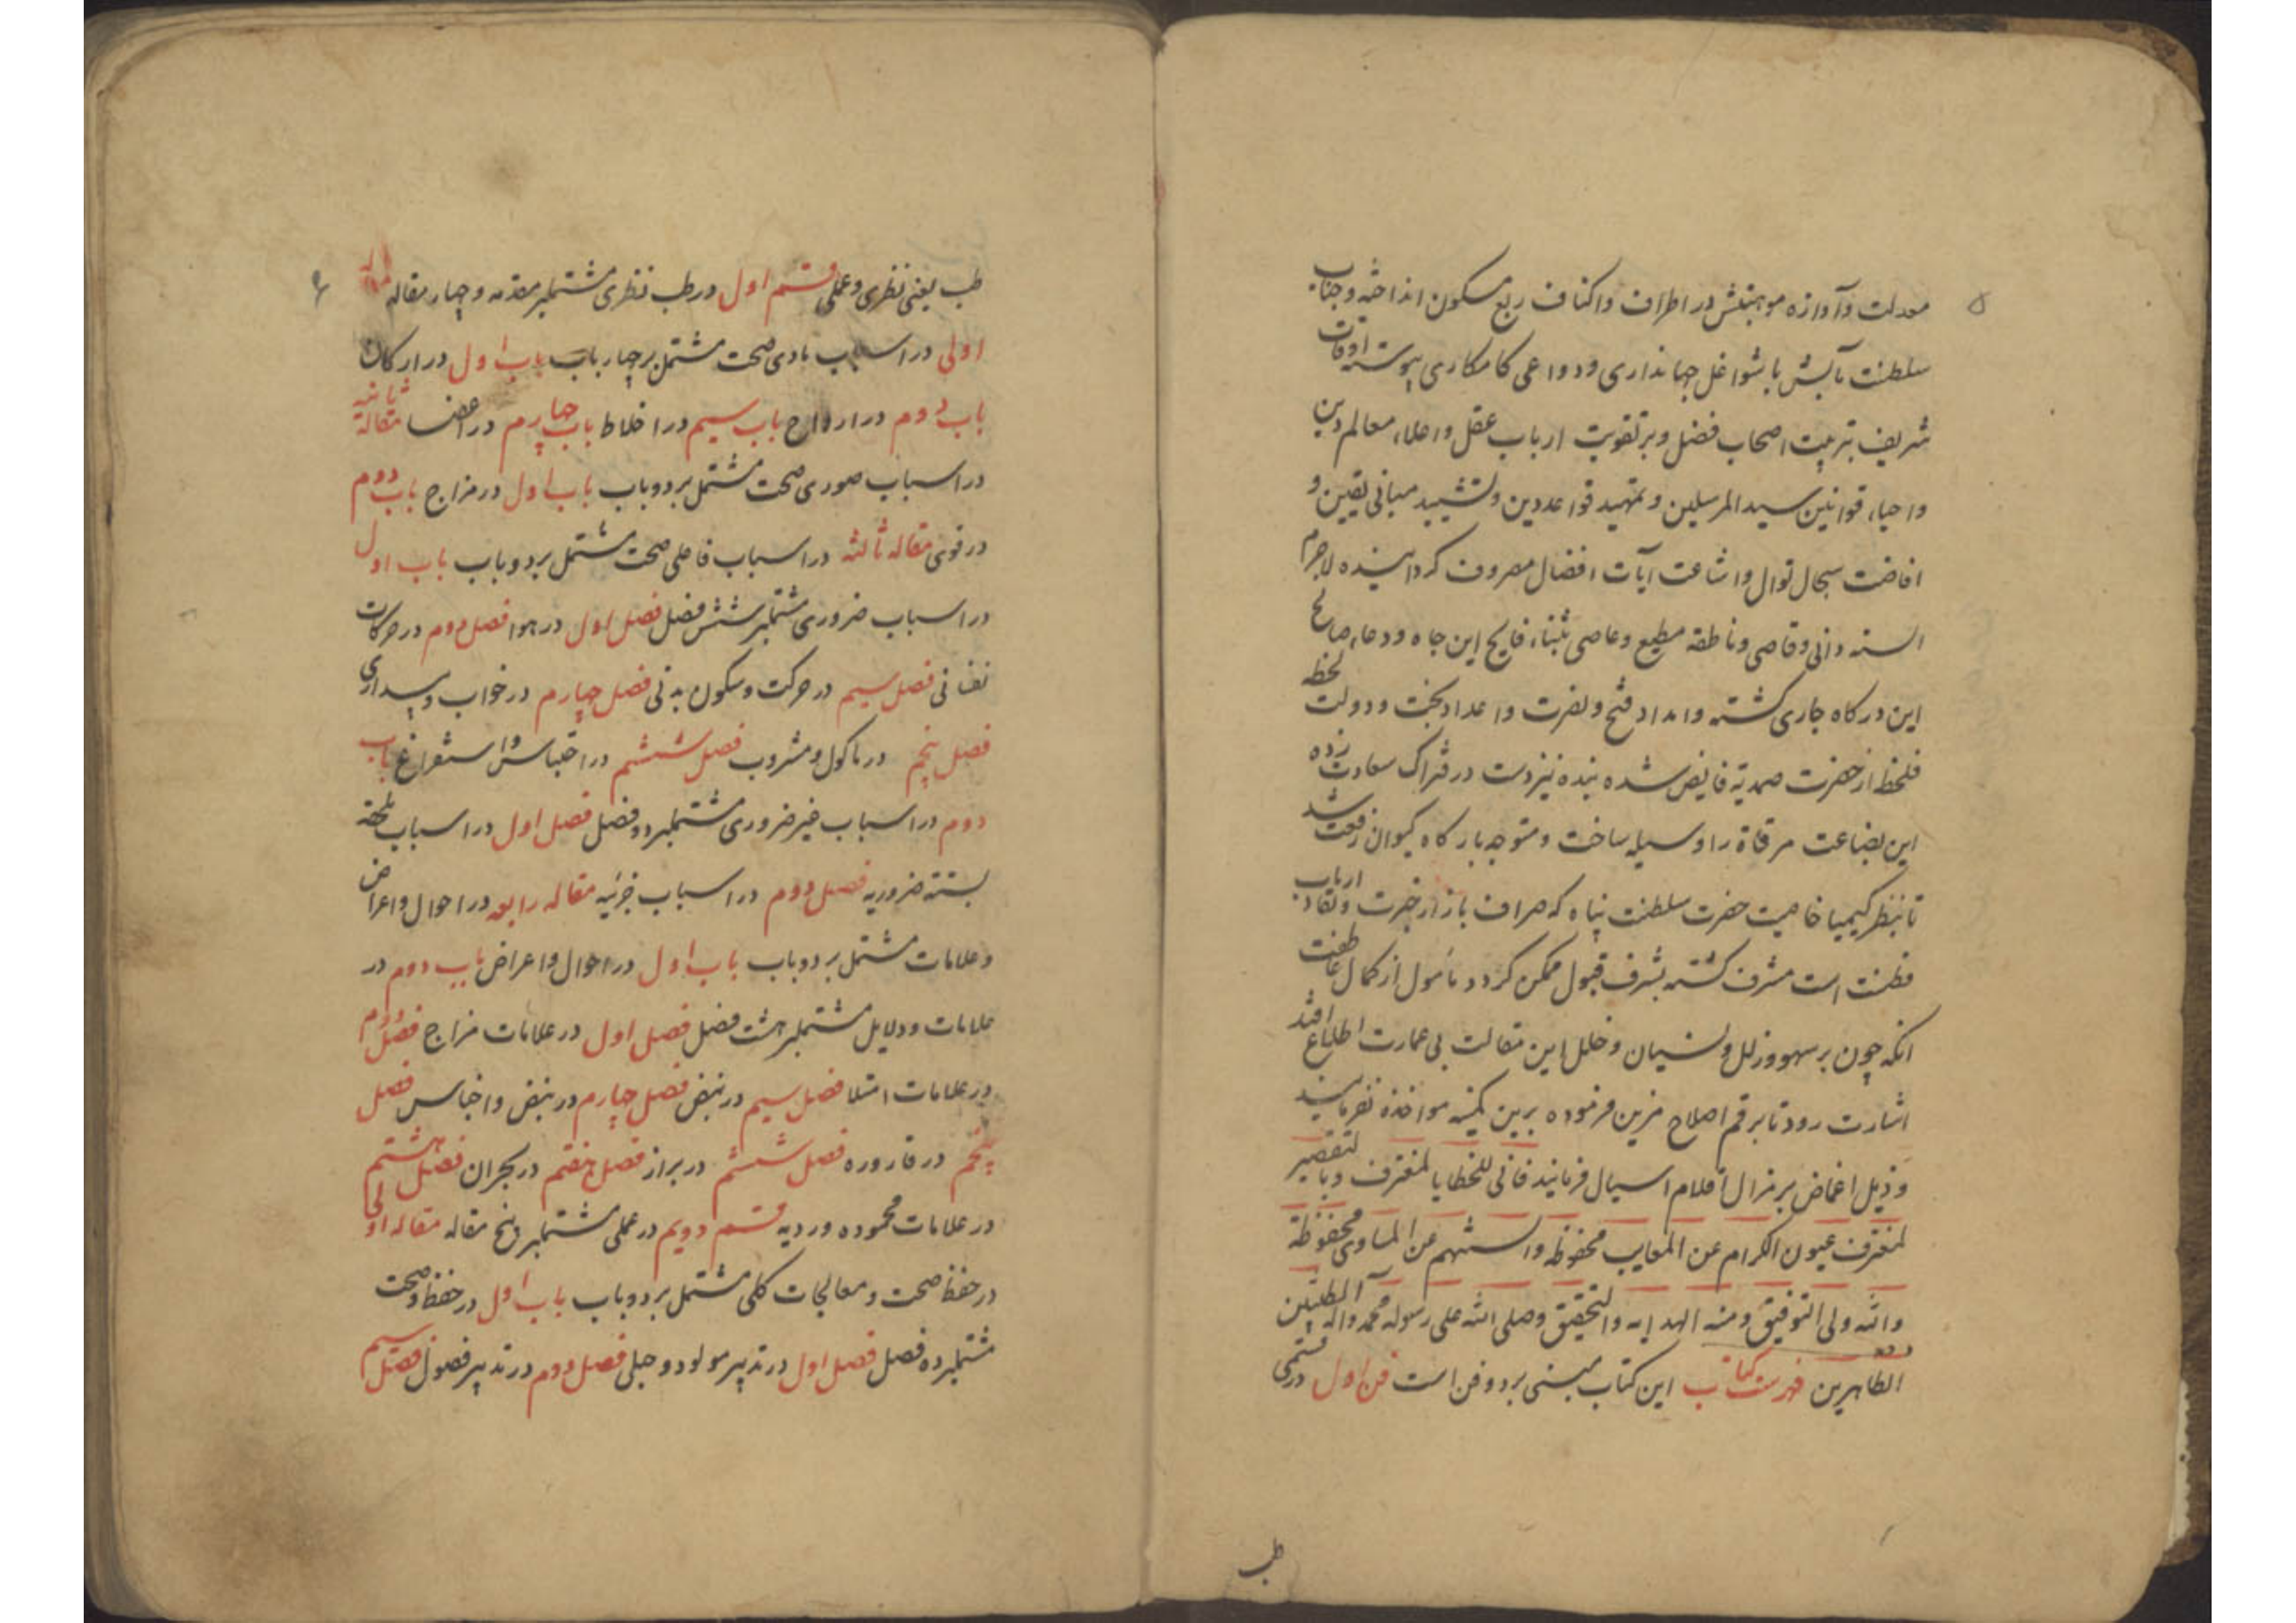 ۵
معدلت و آوازه موهبتش در اطراف و اکناف ربع مسکون انداخته و جناب
سلطنت مآبش با شواغل جهانداری و دواعی کامکاری پیوسته اوقات
شریف بتربیت اصحاب فضل و بر تقویت ارباب عقل و اعلاء معالم دین
و احیاء قوانین سید المرسلین و تمهید قواعد دین و تشیید مبانی یقین و
افاضت سجال نوال و اشاعت آیات افضال مصروف کردانیده لاجرم
السنه دانی و قاصی و ناطقه مطیع و عاصی بثناء فایح این جاه و دعاء صالح
این درکاه جاری کشته و امداد فتح و نصرت و اعداد بخت و دولت لحظه
فلحظه از حضرت صمدیة فایض شده بنده نیز دست در فتراک سعادت زده
این بضاعت مزجاة را وسیله ساخت و متوجه بارکاه کیوان رفعت شد
تا بنظر کیمیا خاصیت حضرت سلطنت پناه که صراف بازار خبرت و نقاد ارباب
فطنت است مشرف کشته بشرف قبول ممکن کردد مأمول از کمال عاطفت
انکه چون بر سهو و زلل و نسیان و خلل این مقالت بی عمارت اطلاع افتد
اشارت رود تا برقم اصلاح مزین فرموده برین کمینه مواخذه نفرمایند
و ذیل اغماض بر مزال اقلام اسبال فرمایند فانی للخطایا لمقترف و بالتقصیر
لمعترف عیون الکرام عن المعایب محفوظه و السنتهم عن المساوی محفوظة
والله ولی التوفیق و منه الهدایه و التحقیق وصلی الله علی رسوله محمد واله الطیبین
الطاهرین فهرست کتاب این کتاب مبنی بر دو فن است فن اول در قسمی
طب
۶
طب یعنی نظری و عملی قسم اول در طب نظری مشتملبر مقدمه و چهار مقاله مقاله
اولی در اسباب مادی صحت مشتمل بر چهار باب باب اول در ارکان
باب دوم در ارواح باب سیم در اخلاط باب چهارم در اعضا مقالة ثانیه
در اسباب صوری صحت مشتمل بر دو باب باب اول در مزاج باب دوم
در قوی مقاله ثالثه در اسباب فاعلی صحت مشتمل بر دو باب باب اول
در اسباب ضروری مشتملبر شش فصل فصل اول در هوا فصل دوم در حرکات
نفسانی فصل سیم در حرکت و سکون بدنی فصل چهارم در خواب و بیداری
فصل پنجم در ماکول و مشروب فصل ششم در احتباس و استفراغ باب
دوم در اسباب غیر ضروری مشتملبر دو فصل فصل اول در اسباب ملحقه
بسته ضروریه فصل دوم در اسباب جزئیه مقاله رابعه در احوال و اعراض
و علامات مشتمل بر دو باب باب اول در احوال و اعراض باب دوم در
علامات و دلایل مشتملبر هشت فصل فصل اول در علامات مزاج فصل دوم
در علامات امتلا فصل سیم در نبض فصل چهارم در نبض و اجناس فصل
پنجم در قاروره فصل ششم در براز فصل هفتم در بحران فصل هشتم
در علامات محموده و ردیه قسم دویم در عملی مشتملبر پنج مقاله مقاله اولی
در حفظ صحت و معالجات کلی مشتمل بر دو باب باب اول در حفظ صحت
مشتملبر ده فصل فصل اول در تدبیر مولود و حبلی فصل دوم در تدبیر فصول فصل سیم